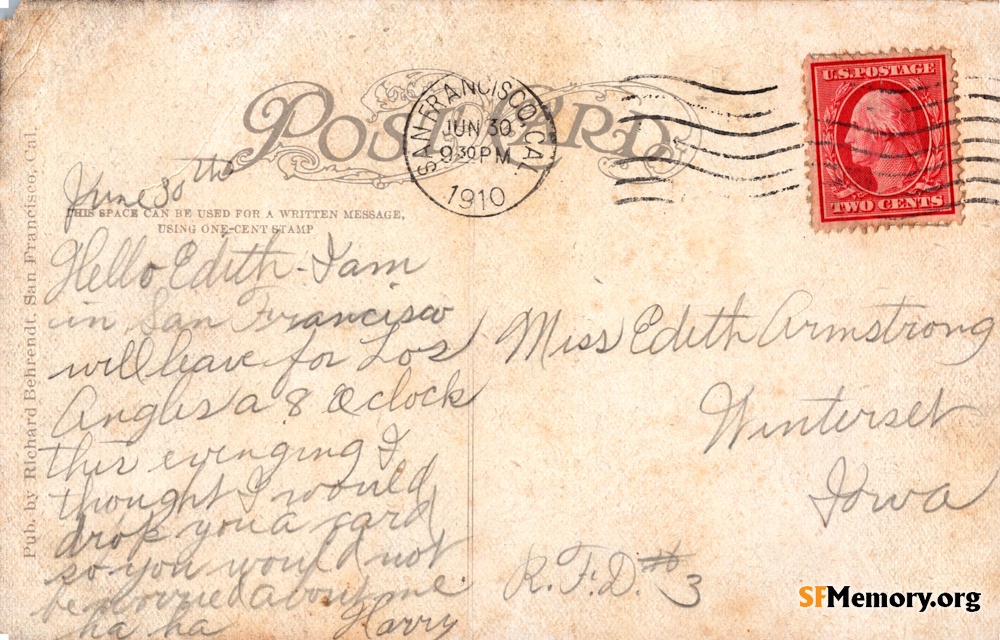 POST CARD
SAN FRANCISCO, CAL.
JUN 30
9 30 PM
1910
U.S. POSTAGE
TWO CENTS
June 30th
THIS SPACE CAN BE USED FOR A WRITTEN MESSAGE,
USING ONE-CENT STAMP
Hello Edith - I am
in San Francisco
will leave for Los
Angles a 8 Oclock
this evenging I
thought I would
drop you a card
so you would not
be worried about me
ha ha Harry
Miss Edith Armstrong
Winterset
Iowa
R.F.D. #3
Pub. by Richard Behrendt, San Francisco, Cal.
SFMemory.org